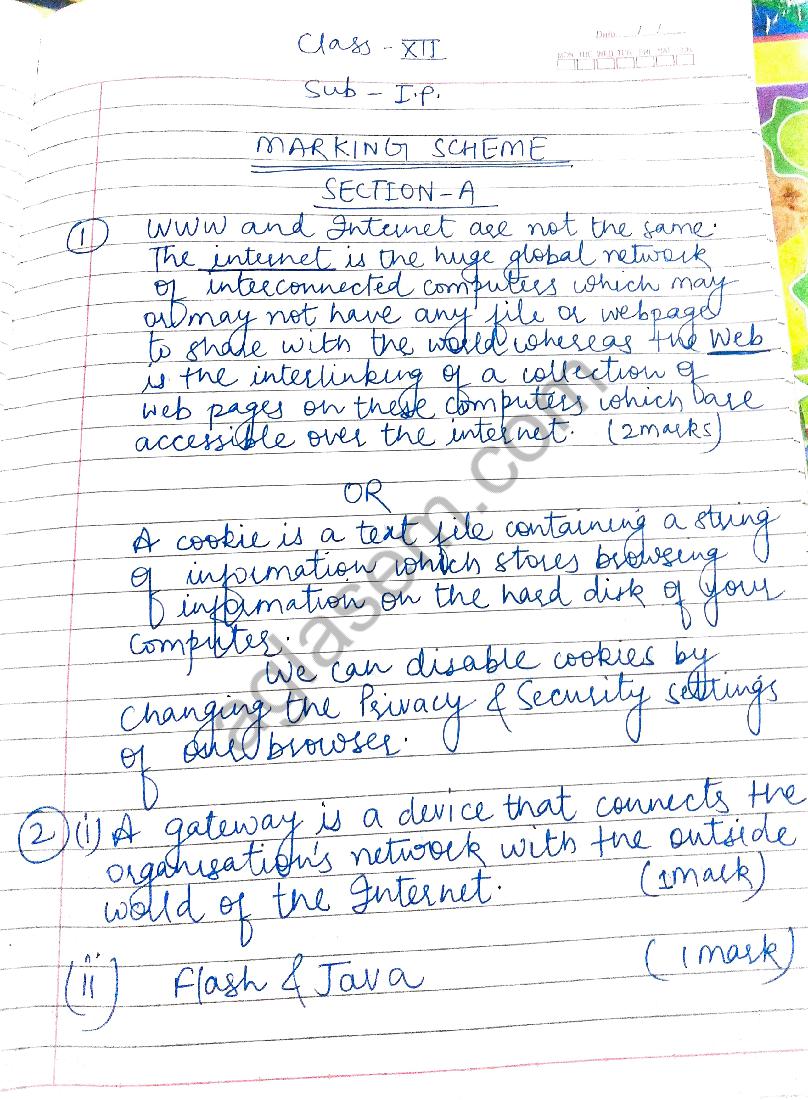 Date / /
MON TUE WED THU FRI SAT SUN
Class - XII
Sub - I.P.
MARKING SCHEME
SECTION-A
1 WWW and Internet are not the same.
The internet is the huge global network
of interconnected computers which may
or may not have any file or webpage
to share with the world whereas the Web
is the interlinking of a collection of
web pages on these computers which are
accessible over the internet. (2marks)
OR
A cookie is a text file containing a string
of information which stores browsing
information on the hard disk of your
computer.
We can disable cookies by
changing the Privacy & Security settings
of our browser.
2 (i) A gateway is a device that connects the
organisation's network with the outside
world of the Internet. (1mark)
(ii) Flash & Java (1mark)
aglasem.com